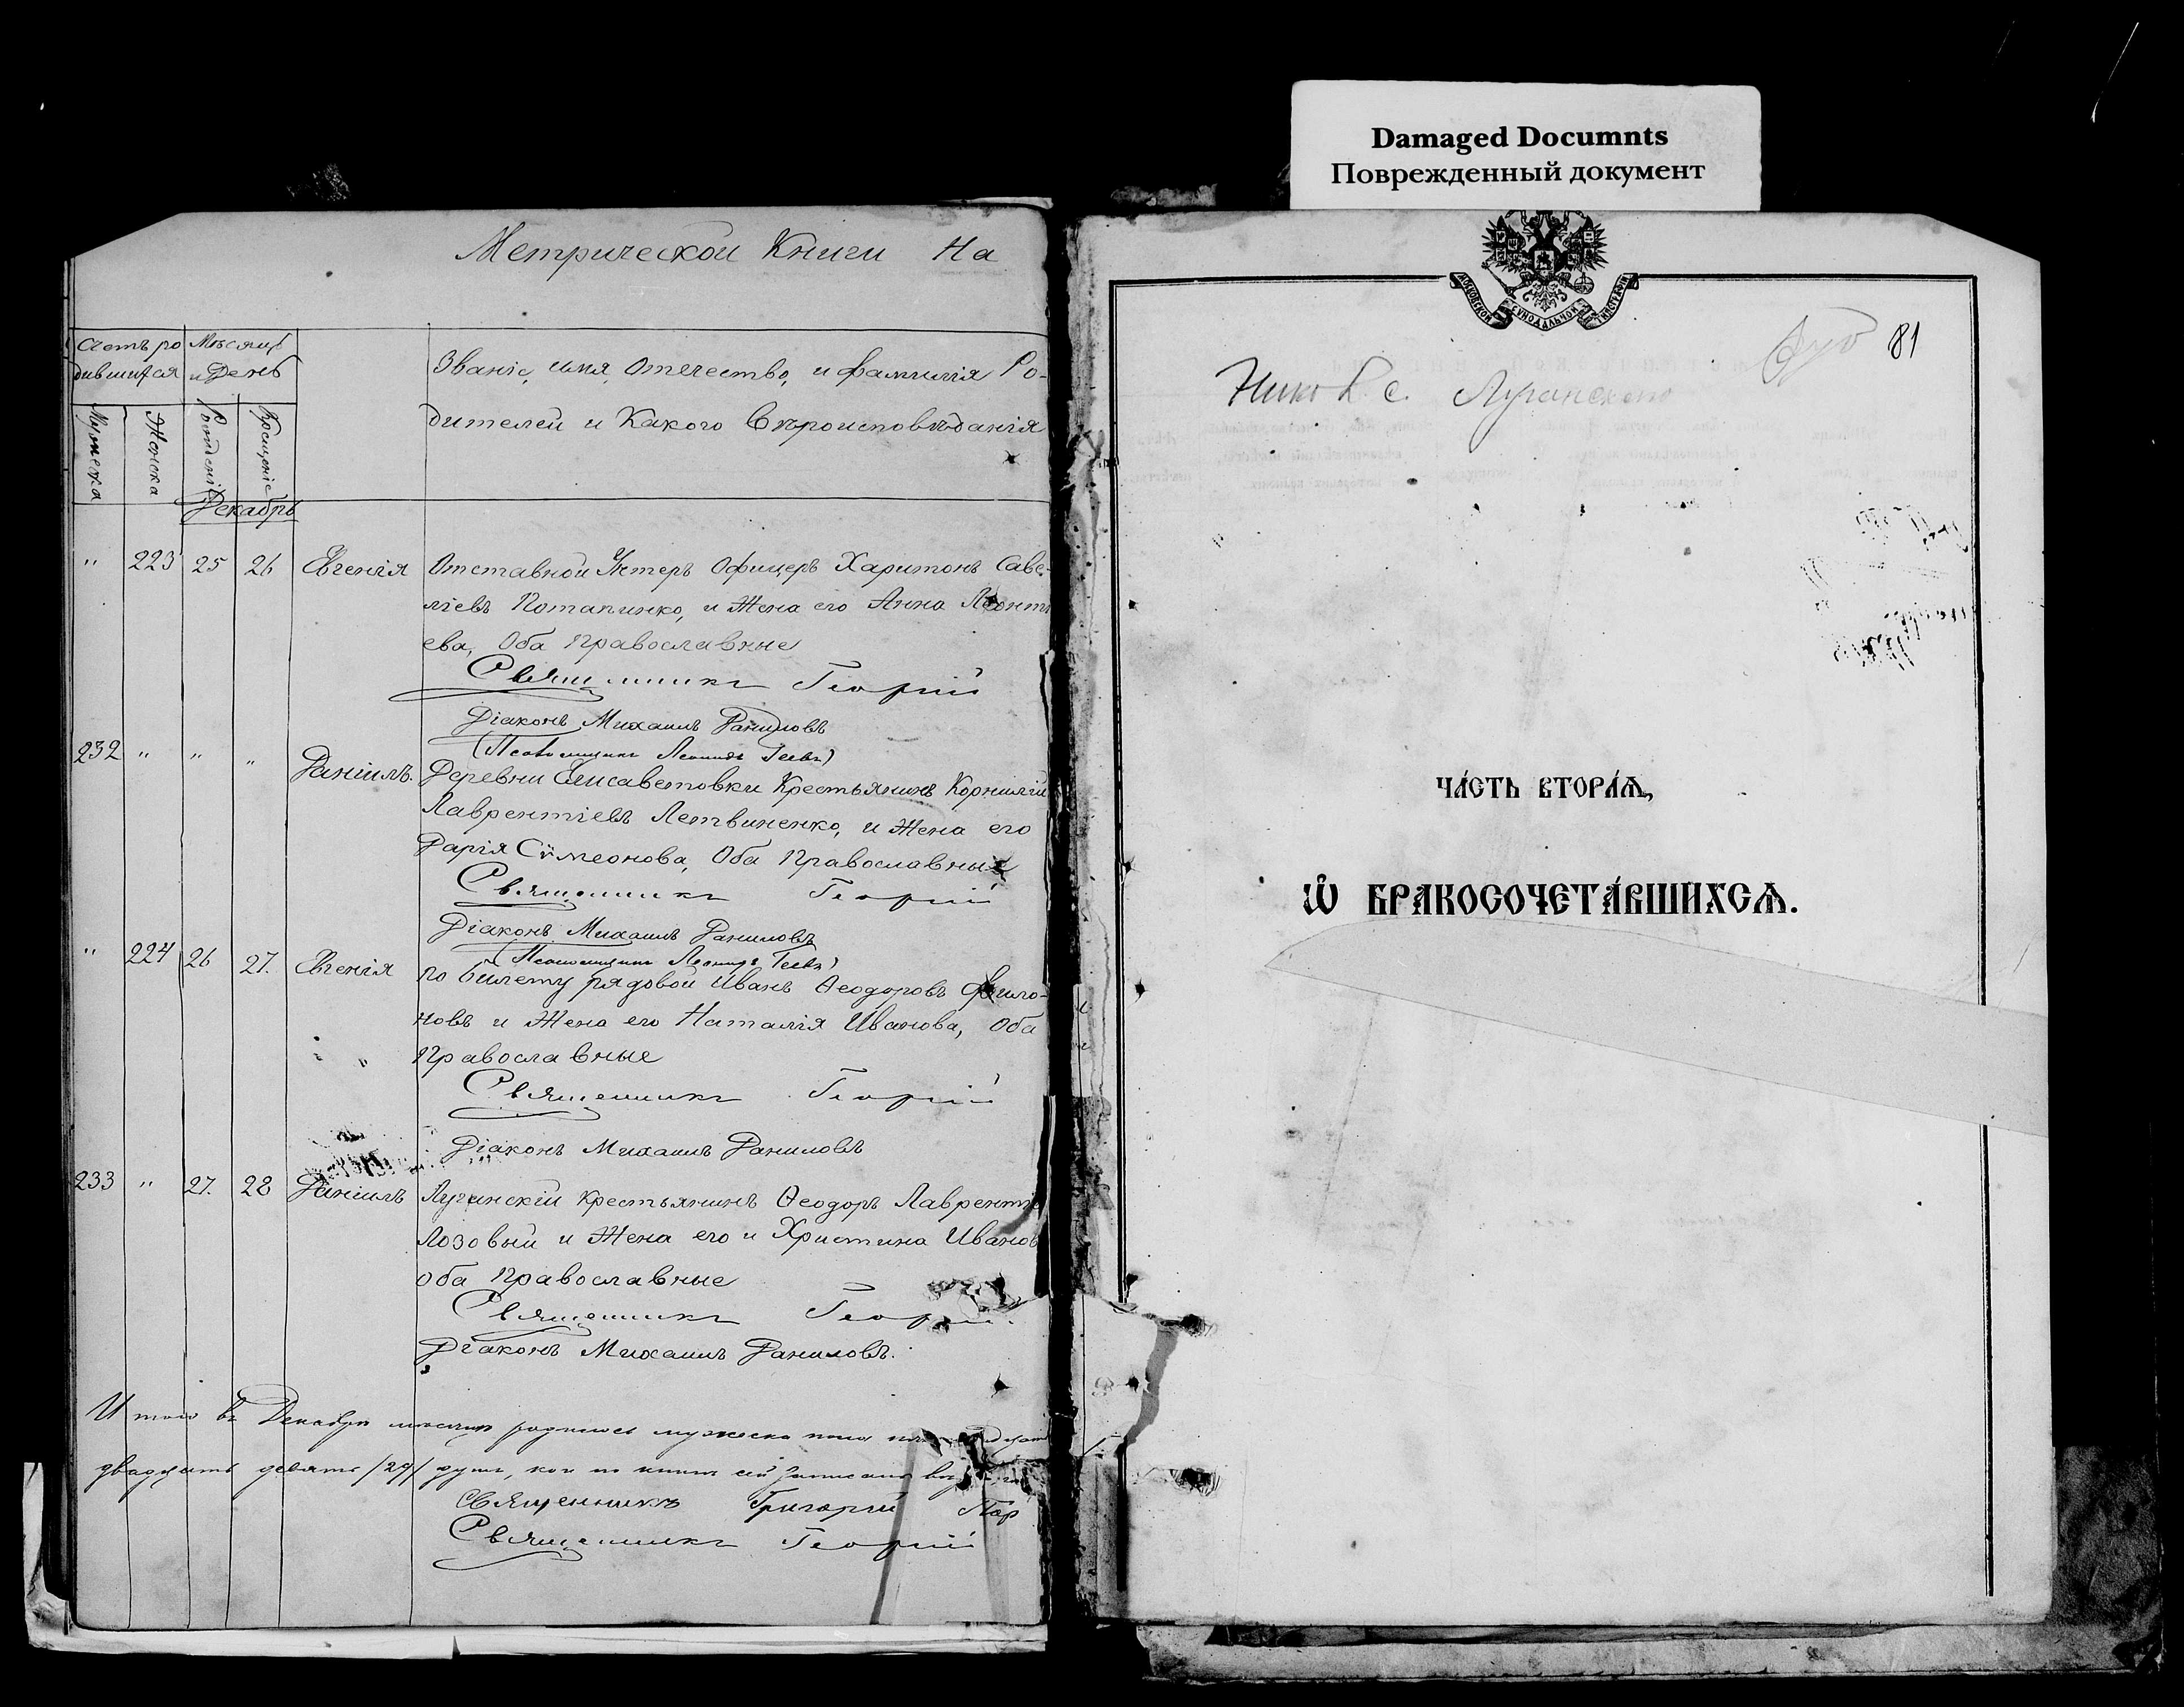 Damaged Documnts
Поврежденный документ
Метрической Книги На
Счетъ ро
дившихся
Мѣсяцъ
и День
Мужска
Женска
Рожденiя
Крещенiе
Званiе, имя, Отечество, и фамилiя Ро-
дителей и Какого Вѣроисповѣданiя
Декабрь
" 223 25 26 Евгенiя Отставной Унтеръ Офицеръ Харитонъ Саве-
лiевъ Потапинко, и Жена его Анна Леонть
ева, Оба православные
Священникъ Георгiй
Дiаконъ Михаилъ Даниловъ
232 " " " Данiилъ Деревни Елисаветовки Крестьянинъ Корнилiй
Лаврентiевъ Летвиненко, и Жена его
Дарiя Сѵмеонова, Оба Православные
Священникъ Георгiй
Дiаконъ Михаилъ Даниловъ
" 224 26 27. Евгенiя по билету рядовой Иванъ Ѳеодоровъ Фило-
новъ и Жена его Наталiя Иванова, Оба
Православные
Священникъ Георгiй
Дiаконъ Михаилъ Даниловъ
233 " 27. 28 Данiилъ Луганскiй крестьянинъ Ѳеодоръ Лаврентiе
Лозовый и Жена его и Христина Иванов
оба Православные
Священникъ Георгi
Дiаконъ Михаилъ Даниловъ.
Итого въ Декабрѣ мѣсяцѣ родилось мужеска пола
двадцать девять /29/ душъ, кои по книгѣ сей записаны
Священникъ Григорiй Пор
Священникъ Георгiй
МОСКОВСКОЙ СѴНОДАЛЬНОЙ ТИПОГРАФІИ
81
с. Луганского
ЧА́СТЬ ВТОРА́Ѧ,
Ѡ҆ БРАКОСОЧЕТА́ВШИХСѦ.